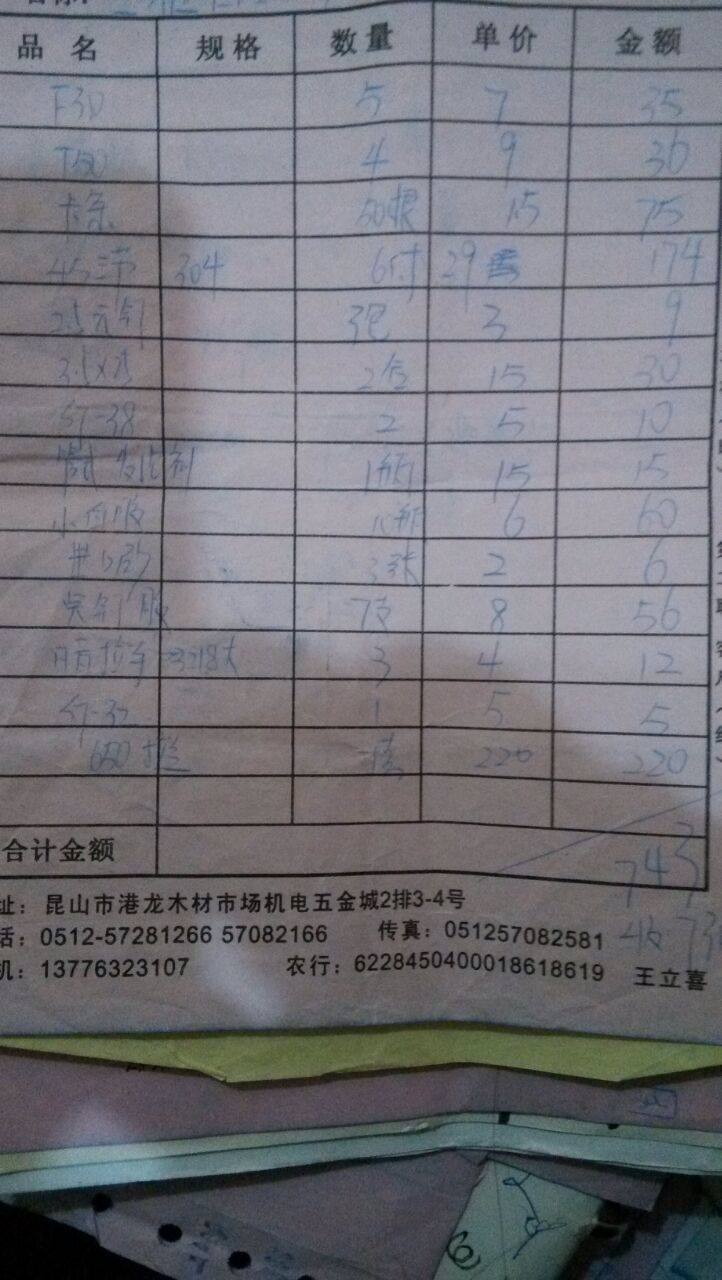 品名 规格 数量 单价 金额
F30 5 7 35
T50 4 9 36
卡条 50根 1.5 75
45三节 304 6付 29 174
25元钉 3包 3 9
3.5×25 2合 15 30
ST-38 2 5 10
1瓶 15 15
小白胶 10瓶 6 60
进口砂 3张 2 6
免钉胶 7支 8 56
暗拉手 大 3 4 12
ST-32 1 5 5
220 220
合计金额 743
址：昆山市港龙木材市场机电五金城2排3-4号
话：0512-57281266 57082166 传真：051257082581
机：13776323107 农行：6228450400018618619 王立喜
收 73